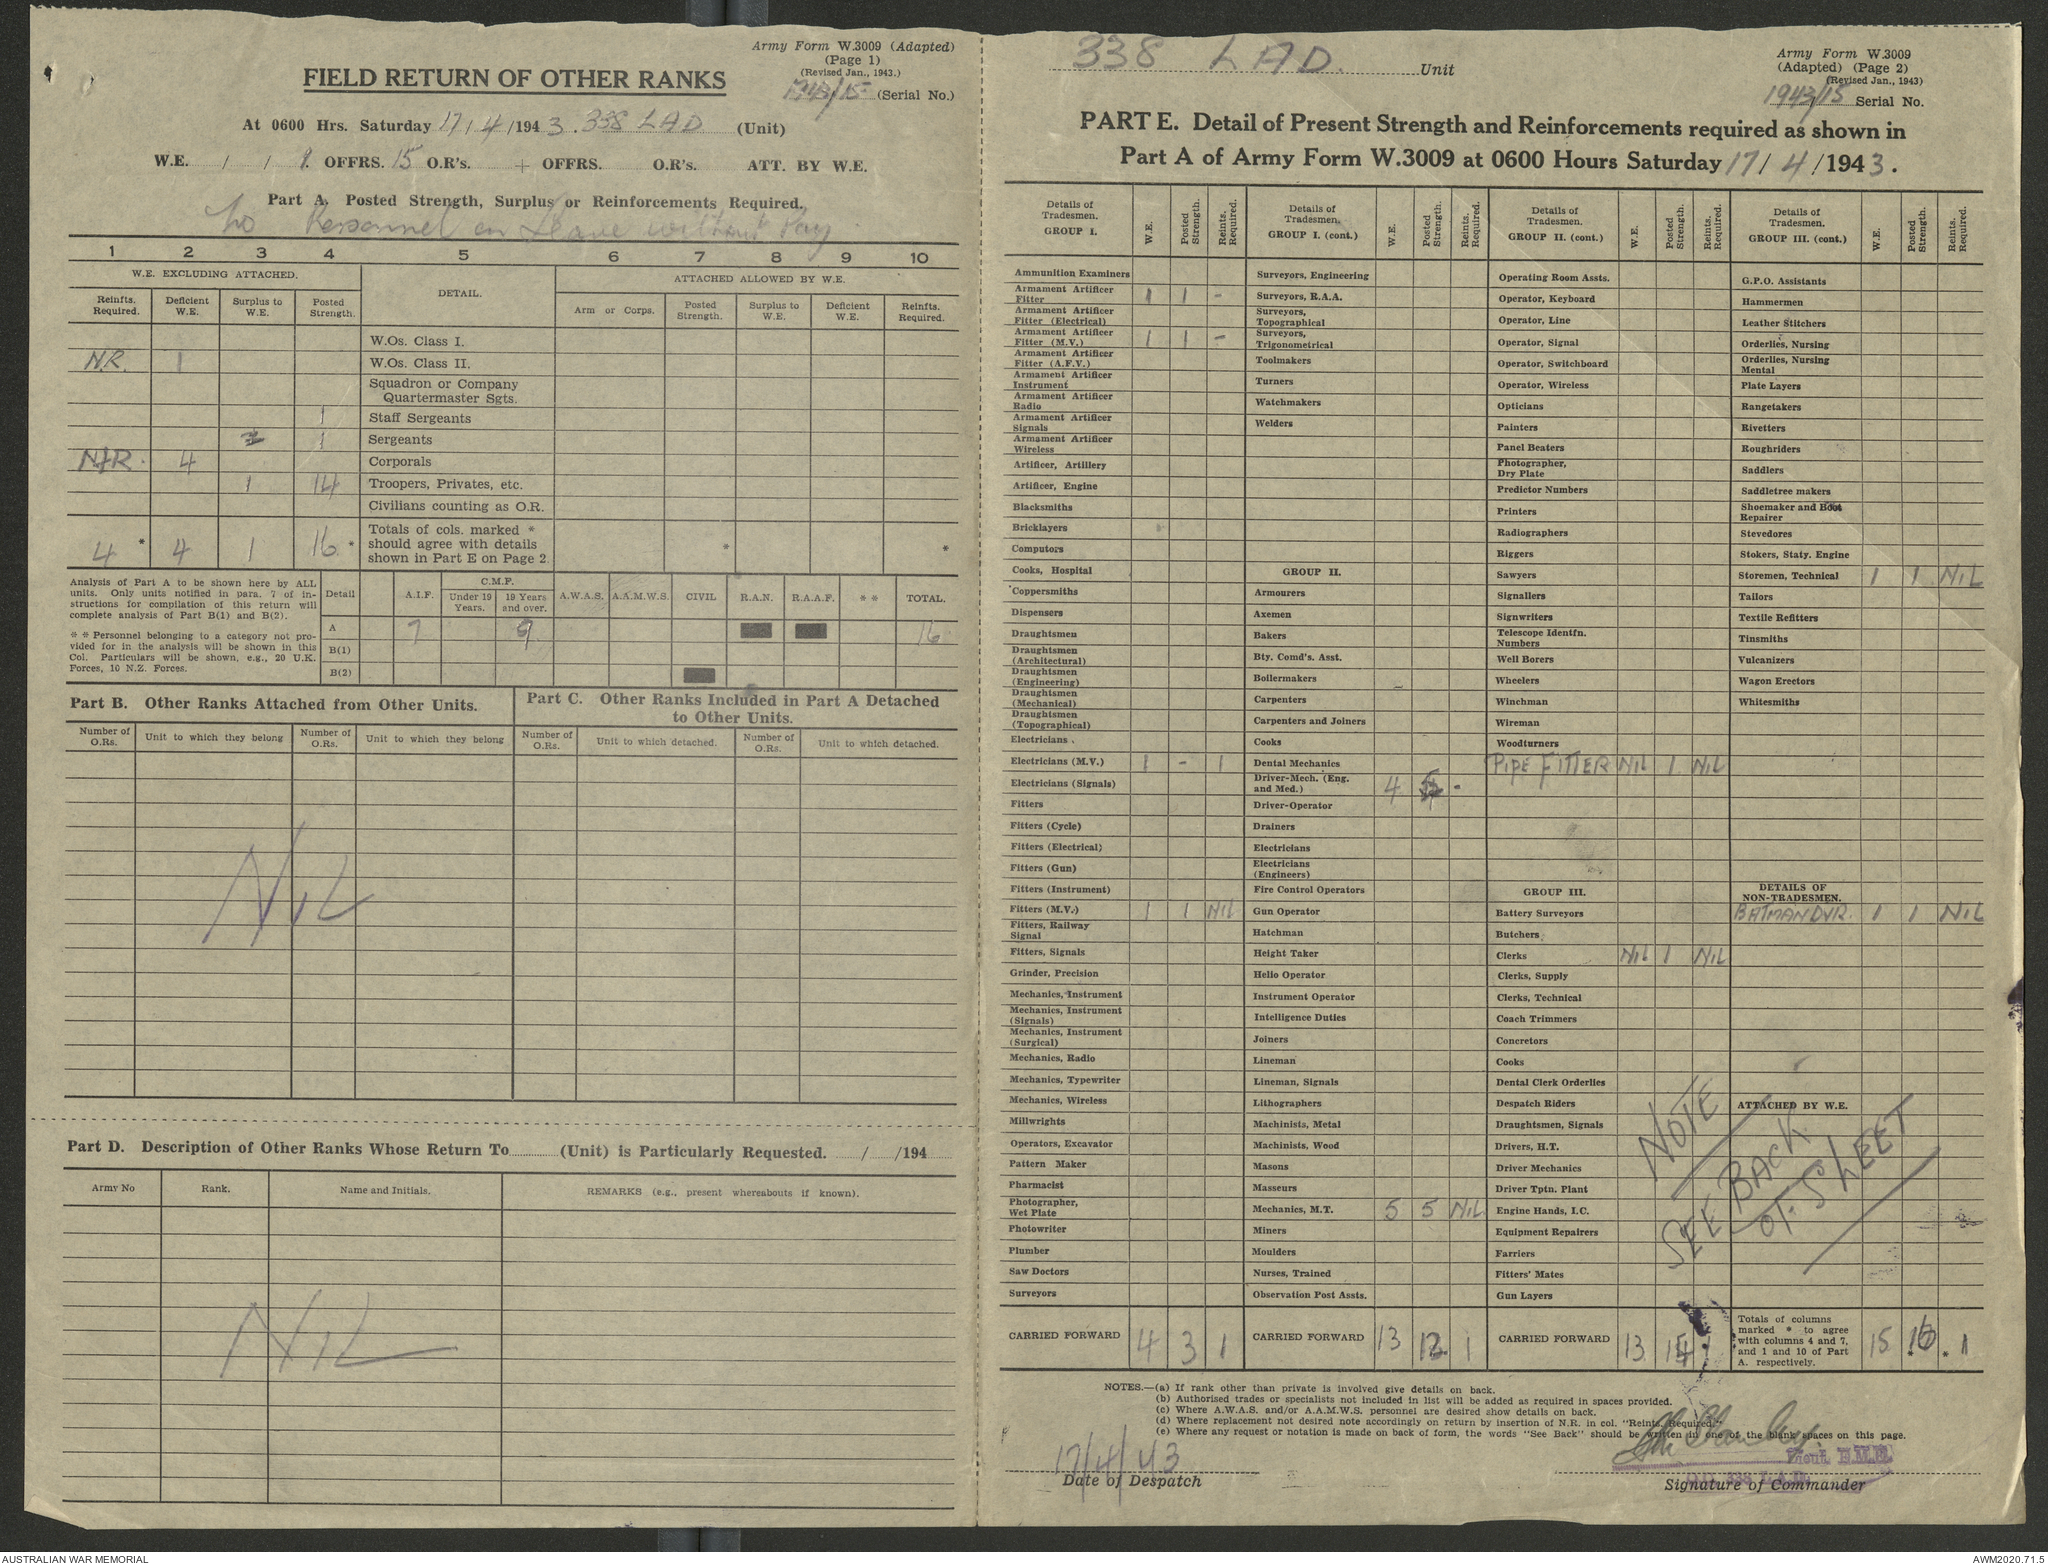 Army Form W.3009 (Adapted)
(Page 1)
(Revised Jan., 1943.)
1943/15 (Serial No.)
FIELD RETURN OF OTHER RANKS
At 0600 Hrs. Saturday 17/4/1943. 338 LAD (Unit)
W.E. / / 9. OFFRS. 15 O.R's. + OFFRS. O.R's. ATT. BY W.E.
Part A. Posted Strength, Surplus or Reinforcements Required.
No Personnel on Leave without Pay
1 2 3 4 5 6 7 8 9 10
W.E. EXCLUDING ATTACHED. DETAIL. ATTACHED ALLOWED BY W.E.
Reinfts. Required. Deficient W.E. Surplus to W.E. Posted Strength. Arm or Corps. Posted Strength. Surplus to W.E. Deficient W.E. Reinfts. Required.
W.Os. Class I.
N.R. 1 W.Os. Class II.
Squadron or Company Quartermaster Sgts.
1 Staff Sergeants
1 Sergeants
N.R. 4 Corporals
1 14 Troopers, Privates, etc.
Civilians counting as O.R.
4 * 4 1 16 * Totals of cols. marked * should agree with details shown in Part E on Page 2. * *
Analysis of Part A to be shown here by ALL units. Only units notified in para. 7 of instructions for compilation of this return will complete analysis of Part B(1) and B(2).
* * Personnel belonging to a category not provided for in the analysis will be shown in this Col. Particulars will be shown, e.g., 20 U.K. Forces, 10 N.Z. Forces.
Detail A.I.F. C.M.F. Under 19 Years. 19 Years and over. A.W.A.S. A.A.M.W.S. CIVIL R.A.N. R.A.A.F. * * TOTAL.
A 7 9 16
B(1)
B(2)
Part B. Other Ranks Attached from Other Units.
Part C. Other Ranks Included in Part A Detached to Other Units.
Number of O.Rs. Unit to which they belong Number of O.Rs. Unit to which they belong Number of O.Rs. Unit to which detached. Number of O.Rs. Unit to which detached.
NIL
Part D. Description of Other Ranks Whose Return To (Unit) is Particularly Requested. / /194
Army No Rank. Name and Initials. REMARKS (e.g., present whereabouts if known).
NIL
338 LAD. Unit
Army Form W.3009
(Adapted) (Page 2)
(Revised Jan., 1943)
1943/15 Serial No.
PART E. Detail of Present Strength and Reinforcements required as shown in
Part A of Army Form W.3009 at 0600 Hours Saturday 17/4/1943.
Details of Tradesmen. GROUP I. W.E. Posted Strength. Reints. Required.
Ammunition Examiners
Armament Artificer Fitter 1 1 -
Armament Artificer Fitter (Electrical)
Armament Artificer Fitter (M.V.) 1 1 -
Armament Artificer Fitter (A.F.V.)
Armament Artificer Instrument
Armament Artificer Radio
Armament Artificer Signals
Armament Artificer Wireless
Artificer, Artillery
Artificer, Engine
Blacksmiths
Bricklayers
Computors
Cooks, Hospital
Coppersmiths
Dispensers
Draughtsmen
Draughtsmen (Architectural)
Draughtsmen (Engineering)
Draughtsmen (Mechanical)
Draughtsmen (Topographical)
Electricians
Electricians (M.V.) 1 - 1
Electricians (Signals)
Fitters
Fitters (Cycle)
Fitters (Electrical)
Fitters (Gun)
Fitters (Instrument)
Fitters (M.V.) 1 1 NIL
Fitters, Railway Signal
Fitters, Signals
Grinder, Precision
Mechanics, Instrument
Mechanics, Instrument (Signals)
Mechanics, Instrument (Surgical)
Mechanics, Radio
Mechanics, Typewriter
Mechanics, Wireless
Millwrights
Operators, Excavator
Pattern Maker
Pharmacist
Photographer, Wet Plate
Photowriter
Plumber
Saw Doctors
Surveyors
CARRIED FORWARD 4 3 1
Details of Tradesmen. GROUP I. (cont.) W.E. Posted Strength. Reints. Required.
Surveyors, Engineering
Surveyors, R.A.A.
Surveyors, Topographical
Surveyors, Trigonometrical
Toolmakers
Turners
Watchmakers
Welders
GROUP II.
Armourers
Axemen
Bakers
Bty. Comd's. Asst.
Boilermakers
Carpenters
Carpenters and Joiners
Cooks
Dental Mechanics
Driver-Mech. (Eng. and Med.) 4 5 -
Driver-Operator
Drainers
Electricians
Electricians (Engineers)
Fire Control Operators
Gun Operator
Hatchman
Height Taker
Helio Operator
Instrument Operator
Intelligence Duties
Joiners
Lineman
Lineman, Signals
Lithographers
Machinists, Metal
Machinists, Wood
Masons
Masseurs
Mechanics, M.T. 5 5 NIL
Miners
Moulders
Nurses, Trained
Observation Post Assts.
CARRIED FORWARD 13 13 1
Details of Tradesmen. GROUP II. (cont.) W.E. Posted Strength. Reints. Required.
Operating Room Assts.
Operator, Keyboard
Operator, Line
Operator, Signal
Operator, Switchboard
Operator, Wireless
Opticians
Painters
Panel Beaters
Photographer, Dry Plate
Predictor Numbers
Printers
Radiographers
Riggers
Sawyers
Signallers
Signwriters
Telescope Identfn. Numbers
Well Borers
Wheelers
Winchman
Wireman
Woodturners
PIPE FITTER NIL 1 NIL
GROUP III.
Battery Surveyors
Butchers
Clerks NIL 1 NIL
Clerks, Supply
Clerks, Technical
Coach Trimmers
Concretors
Cooks
Dental Clerk Orderlies
Despatch Riders
Draughtsmen, Signals
Drivers, H.T.
Driver Mechanics
Driver Tptn. Plant
Engine Hands, I.C.
Equipment Repairers
Farriers
Fitters' Mates
Gun Layers
CARRIED FORWARD 13
Details of Tradesmen. GROUP III. (cont.) W.E. Posted Strength. Reints. Required.
G.P.O. Assistants
Hammermen
Leather Stitchers
Orderlies, Nursing
Orderlies, Nursing Mental
Plate Layers
Rangetakers
Rivetters
Roughriders
Saddlers
Saddletree makers
Shoemaker and Boot Repairer
Stevedores
Stokers, Staty. Engine
Storemen, Technical 1 1 NIL
Tailors
Textile Refitters
Tinsmiths
Vulcanizers
Wagon Erectors
Whitesmiths
DETAILS OF NON-TRADESMEN.
BATMAN DVR. 1 1 NIL
ATTACHED BY W.E.
NOTE
SEE BACK
OF SHEET
Totals of columns marked * to agree with columns 4 and 7, and 1 and 10 of Part A. respectively. 15 * 16 * 1
NOTES.—(a) If rank other than private is involved give details on back.
(b) Authorised trades or specialists not included in list will be added as required in spaces provided.
(c) Where A.W.A.S. and/or A.A.M.W.S. personnel are desired show details on back.
(d) Where replacement not desired note accordingly on return by insertion of N.R. in col. "Reints. Required."
(e) Where any request or notation is made on back of form, the words "See Back" should be written in one of the blank spaces on this page.
17/4/43
Date of Despatch
Lieut. E.M.E.
O.C. 338 L.A.D.
Signature of Commander
AUSTRALIAN WAR MEMORIAL
AWM2020.71.5